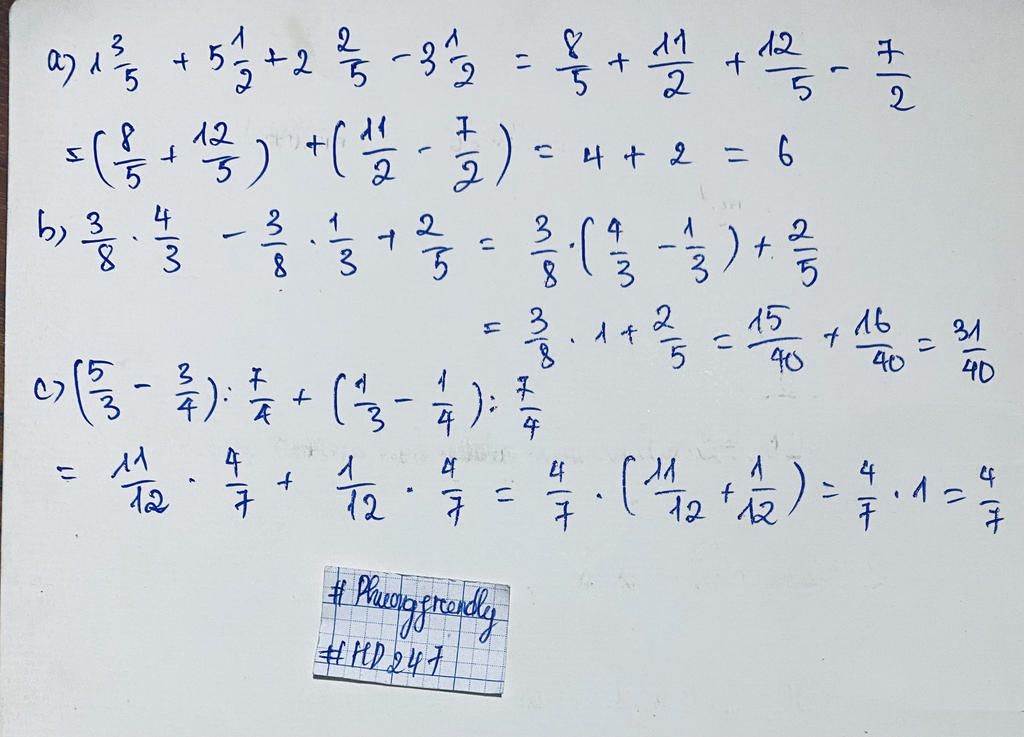 a) 1 3/5 + 5 1/2 + 2 2/5 - 3 1/2 = 8/5 + 11/2 + 12/5 - 7/2
= (8/5 + 12/5) + (11/2 - 7/2) = 4 + 2 = 6
b) 3/8 . 4/3 - 3/8 . 1/3 + 2/5 = 3/8 . (4/3 - 1/3) + 2/5
= 3/8 . 1 + 2/5 = 15/40 + 16/40 = 31/40
c) (5/3 - 3/4) : 7/4 + (1/3 - 1/4) : 7/4
= 11/12 . 4/7 + 1/12 . 4/7 = 4/7 . (11/12 + 1/12) = 4/7 . 1 = 4/7
# Phuongfreendly
#HD247